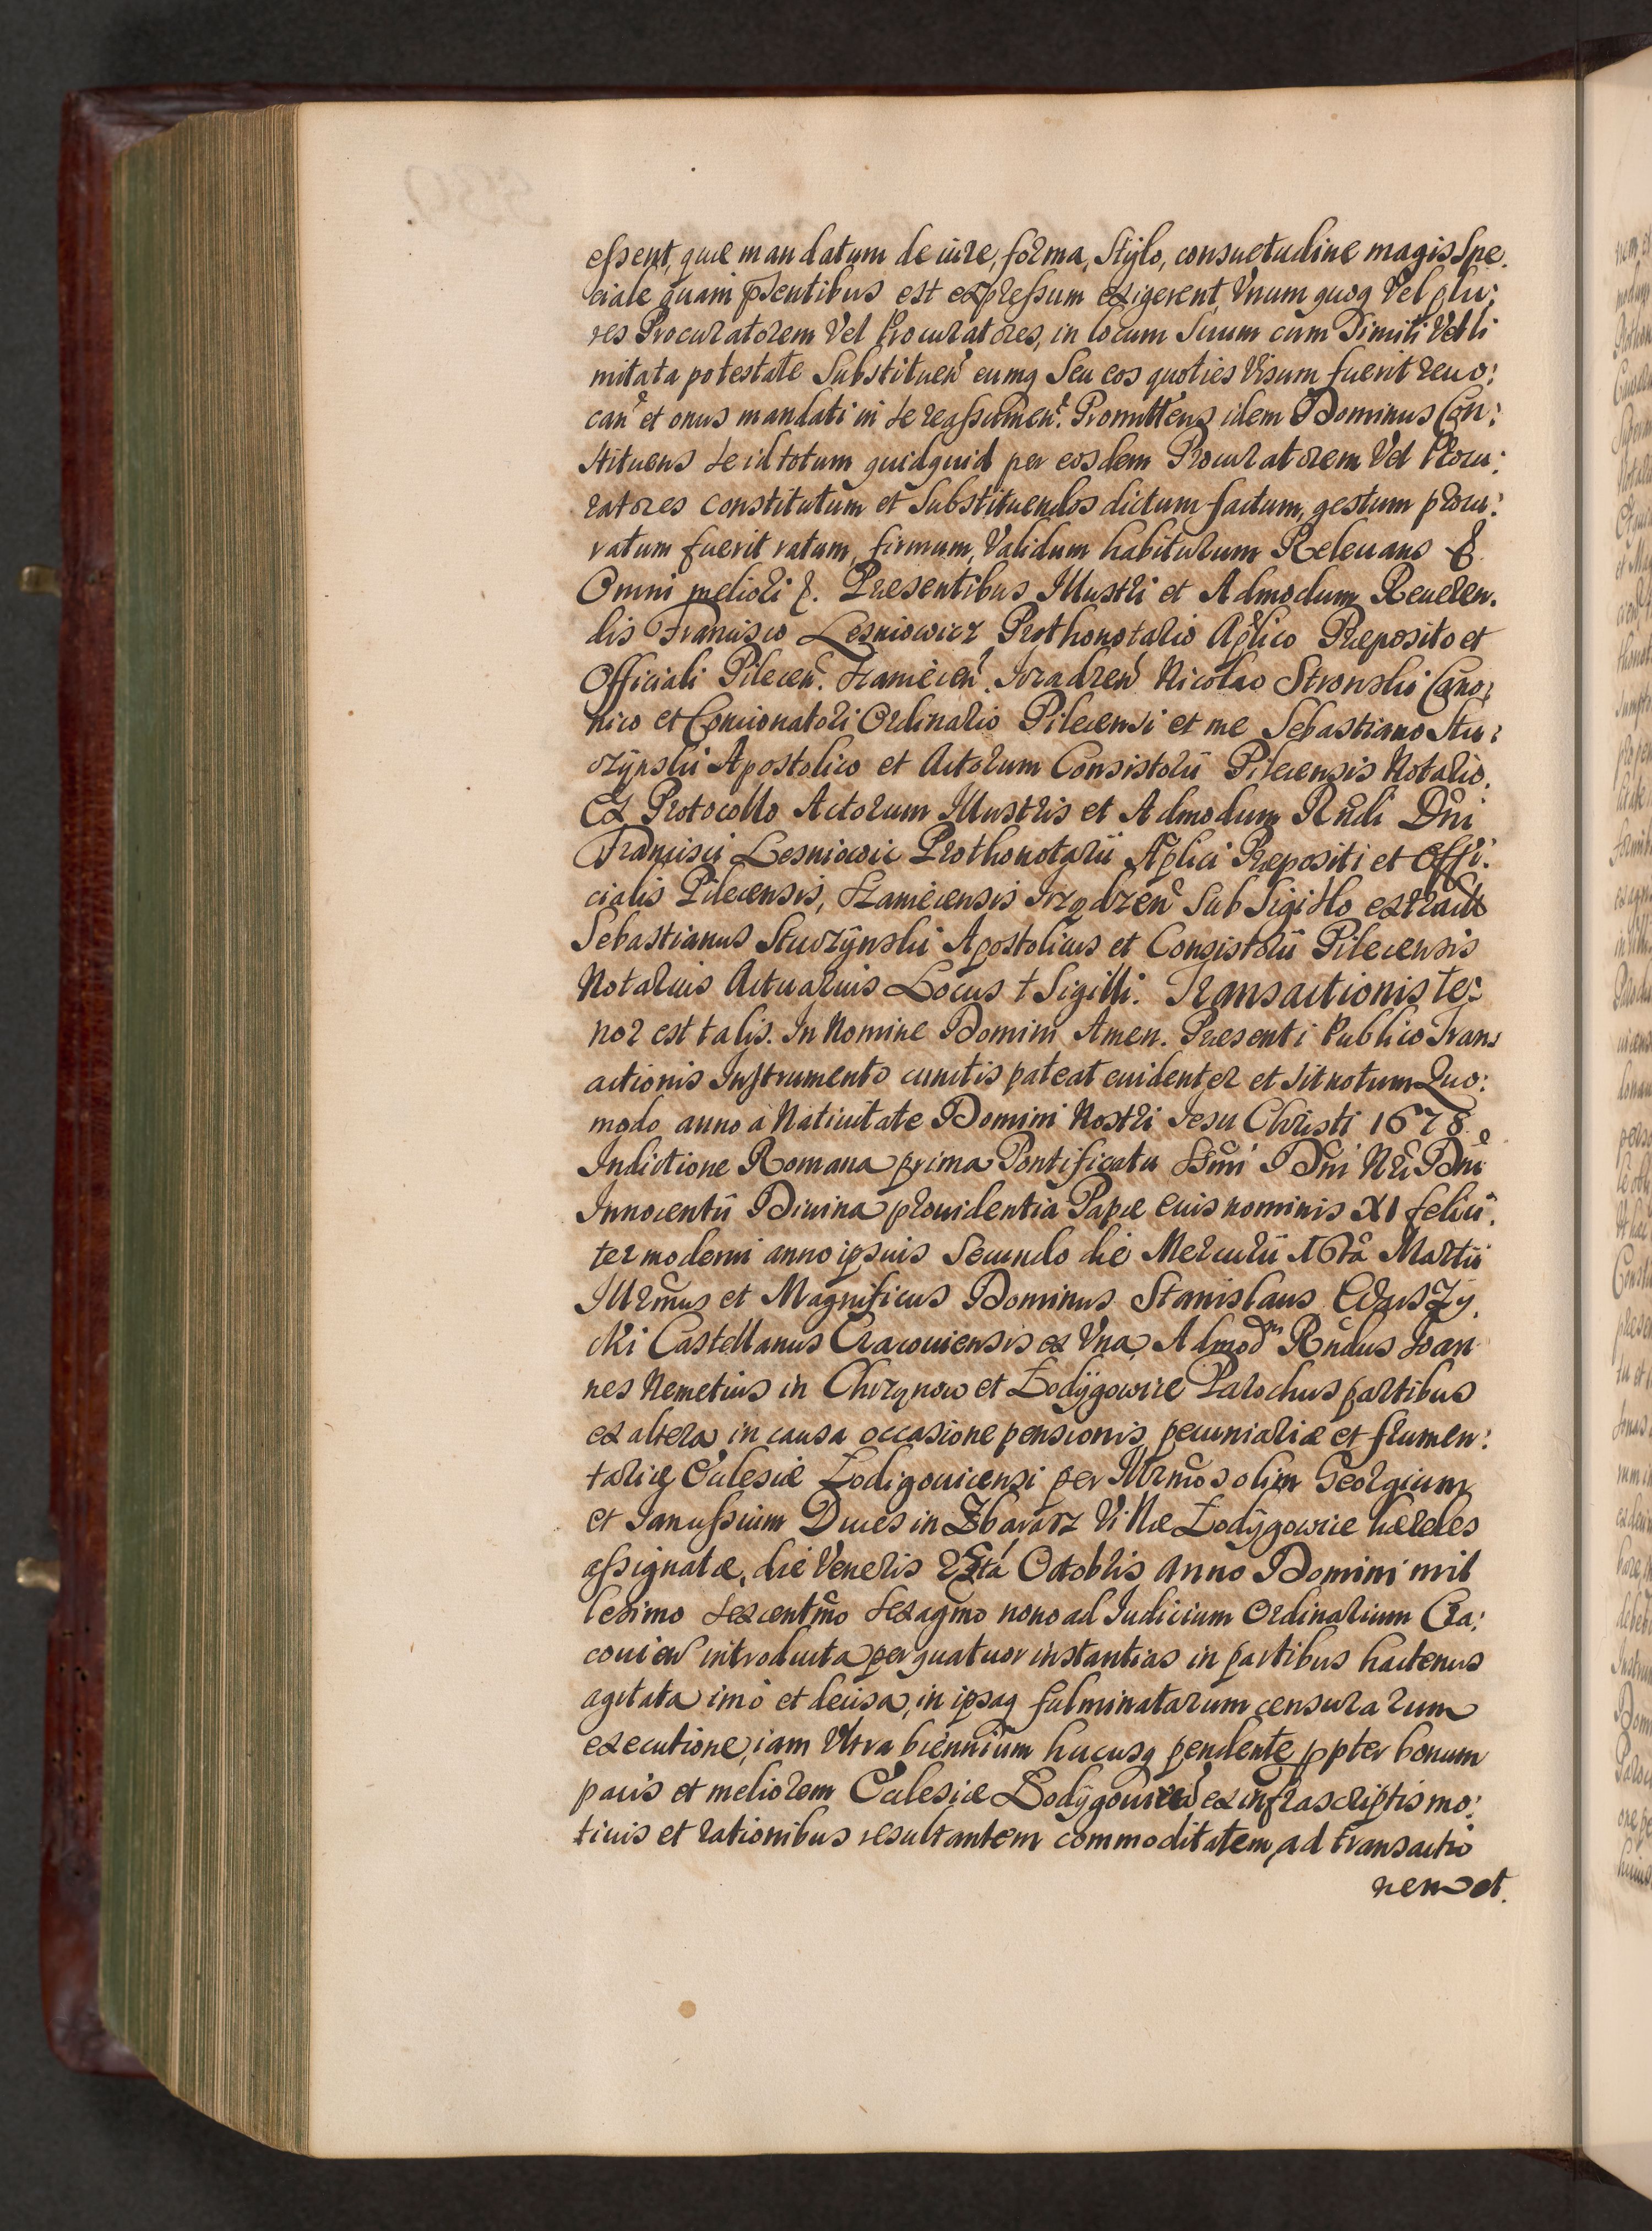 essent, quæ mandatum de iure, forma, Stÿlo, consuetudine magis Spe:
ciale quam p̃sentibus est expressum exigerent, Vnum quoq Vel plu:
res Procuratorem Vel Procuratores, in locum Suum cum Simili Vel li
mitata potestate Substituen̄ eumq Seu eos quoties Visum fuerit reuo:
can̄ et onus mandati in se reassumen̄. Promittens idem Dominus Con:
stituens se id totum quidquid per eosdem Procuratorem Vel Procu:
ratores constitutum et Substituendos dictum factum, gestum procu:
ratum fuerit ratum, firmum, Validum habiturum Releuans &
Omni meliori &. Præsentibus Illustri et Admodum Reueren:
dis Francisco Lesniowicz Prothonotario Aplico Præposito et
Officiali Pilecen̄. Nicolao Stronski Cano:
nico et Concionatori Ordinario Pilecensi et me Sebastiano Stu:
dzÿnski Apostolico et Actorum Consistorii Pilecensis Notario.
Ex Protocollo Actorum Illustris et Admodum Rñdi Dñi
Francisci Lesniowic Prothonotarii Aplici Præpositi et Offi:
cialis Pilecensis, Sub Sigillo extractt
Sebastianus Studzÿnski Apostolicus et Consistorii Pilecensis
Notarius Actuarius Locus † Sigilli. Transactionis te:
nor est talis. In Nomine Domini Amen. Præsenti Publico Trans
actionis Instrumento cunctis pateat euidenter et sit notum Quo:
modo anno a Natiuitate Domini Nostri Jesu Christi 1678.
Indictione Romana prima Pontificatu SSmi Dñi Nri Dñi
Innocentii Diuina prouidentia Papæ euis nominis XI felici:
ter moderni anno ipsius Secundo die Mercurii 16ta Martii
Illrmus et Magnificus Dominus Stanislaus Warszÿ:
cki Castellanus Cracouiensis ex Vna, Admodm Rñdus Joan
nes Nemetius in Chrząnow et Łodÿgowice Parochus partibus
ex altera in causa occasione pensionis pecuniariæ et frumen:
tariæ Ecclesiæ Łodigouicensi per Illrmos olim Georgium
et Janussium Duces in Zbararz Villæ Łodÿgowice hæredes
assignatæ, die Veneris 25ta Octobris anno Domini mil
lesimo sexcentmo sexagmo nono ad Iudicium Ordinarium Cra:
couien̄ introducta per quatuor instantias in partibus hactenus
agitata imò et decisa, in ipsaq fulminatarum censurarum
executione, iam Vltra biennium hucusq pendente ppter bonum
pacis et meliorem Ecclesiæ Łodÿgouicen̄ ex infrascriptis mo:
tiuis et rationibus resultantem commoditatem, ad transactio
nem et.